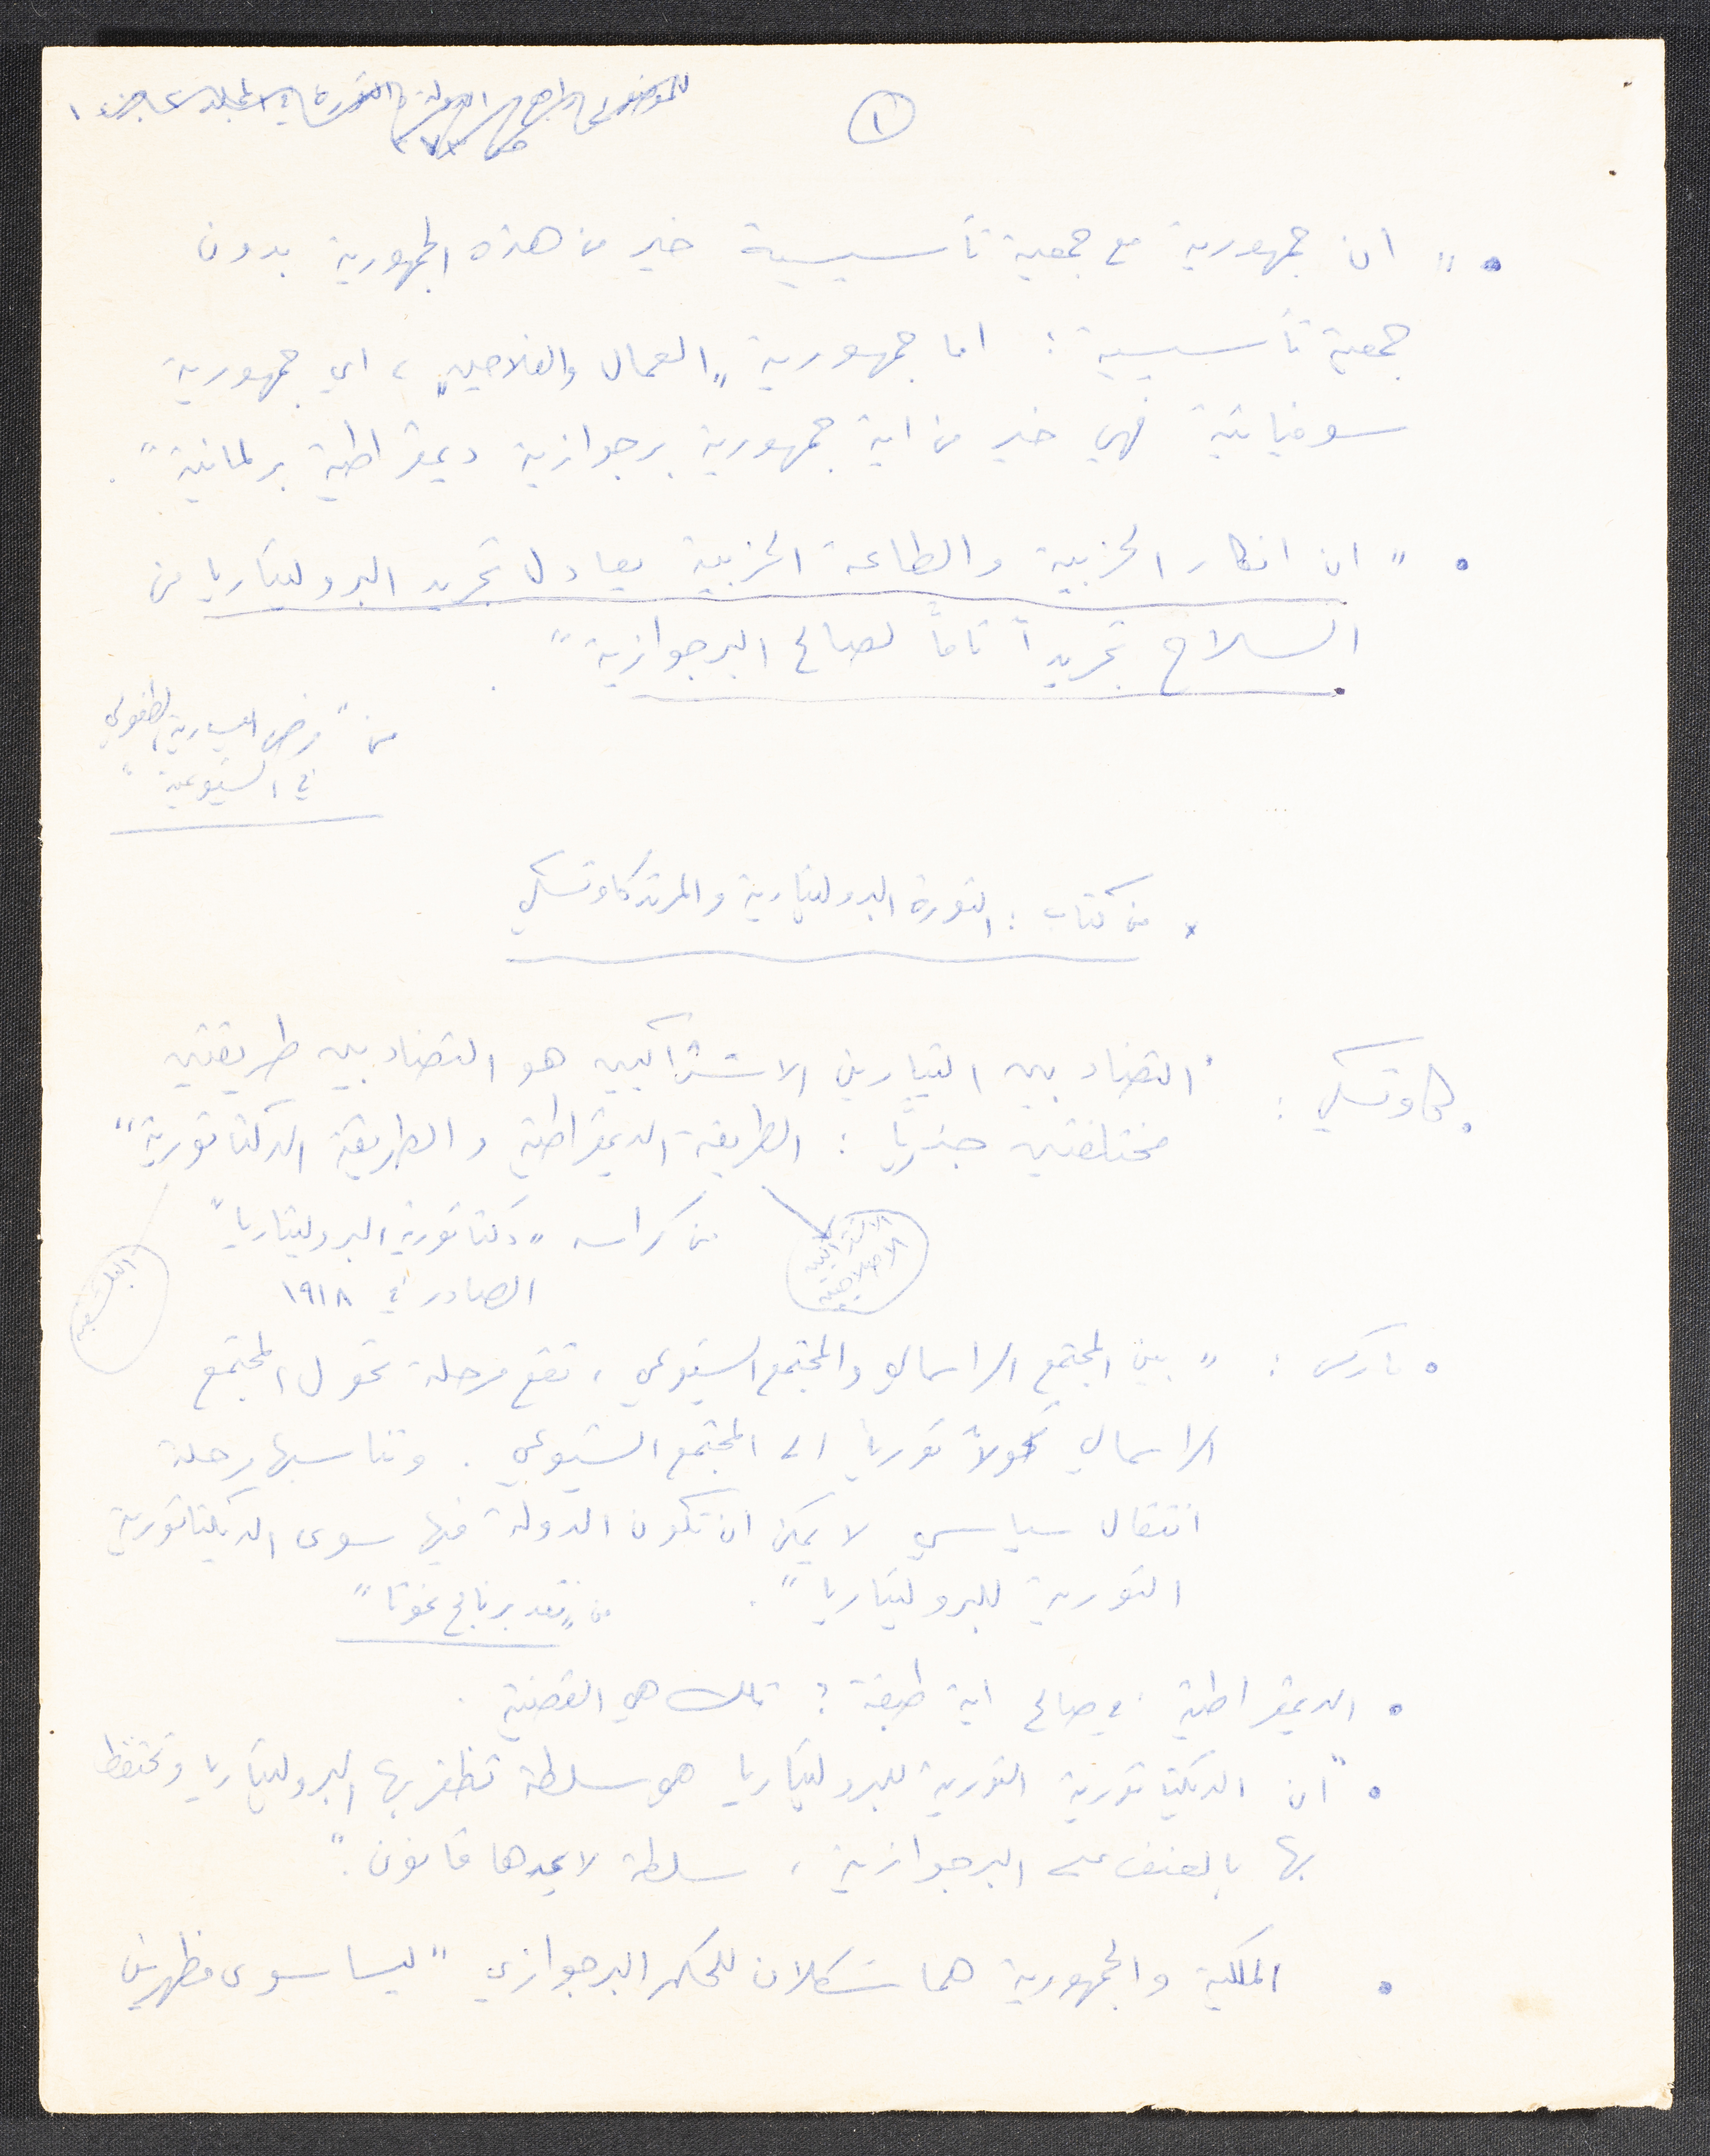 ١
• " ان جمهورية مع جمعية تأسيسية خير من هذه الجمهورية بدون
جمعية تأسيسية : اما جمهورية "العمال والفلاحين" ، اي جمهورية
سوفياتية فهي خير من اية جمهورية برجوازية ديمقراطية برلمانية " .
• " ان انكار الحزبية والطاعة الحزبية يعادل تجريد البروليتاريا من
السلاح تجريداً تاماً لصالح البرجوازية " .
من " مرض اليسارية الطفولي
في الشيوعية "
x من كتاب : الثورة البروليتارية والمرتد كاوتسكي
• كاوتسكي : " التضاد بين التيارين الاشتراكيين هو التضاد بين طريقتين
مختلفتين جذرياً : الطريقة الديمقراطية والطريقة الدكتاتورية "
من كراسه " دكتاتورية البروليتاريا "
الصادر في ١٩١٨
الاشتراكية
الاصلاحية
البلشفية
• ماركس : " بين المجتمع الراسمالي والمجتمع الشيوعي ، تقع مرحلة تحول المجتمع
الراسمالي تحولاً ثوريا الى المجتمع الشيوعي . وتناسبها مرحلة
انتقال سياسي لا يمكن ان تكون الدولة فيها سوى الديكتاتورية
الثورية للبروليتاريا " .
من " نقد برنامج غوتا "
• الديمقراطية في صالح اية طبقة ؟ تلك هي القضية .
• " ان الديكتاتورية الثورية للبروليتاريا هو سلطة تظفر بها البروليتاريا وتحتفظ
بها بالعنف على البرجوازية ، سلطة لا يحدها قانون . "
• الملكية والجمهورية هما شكلان للحكم البرجوازي " ليسا سوى مظهرين